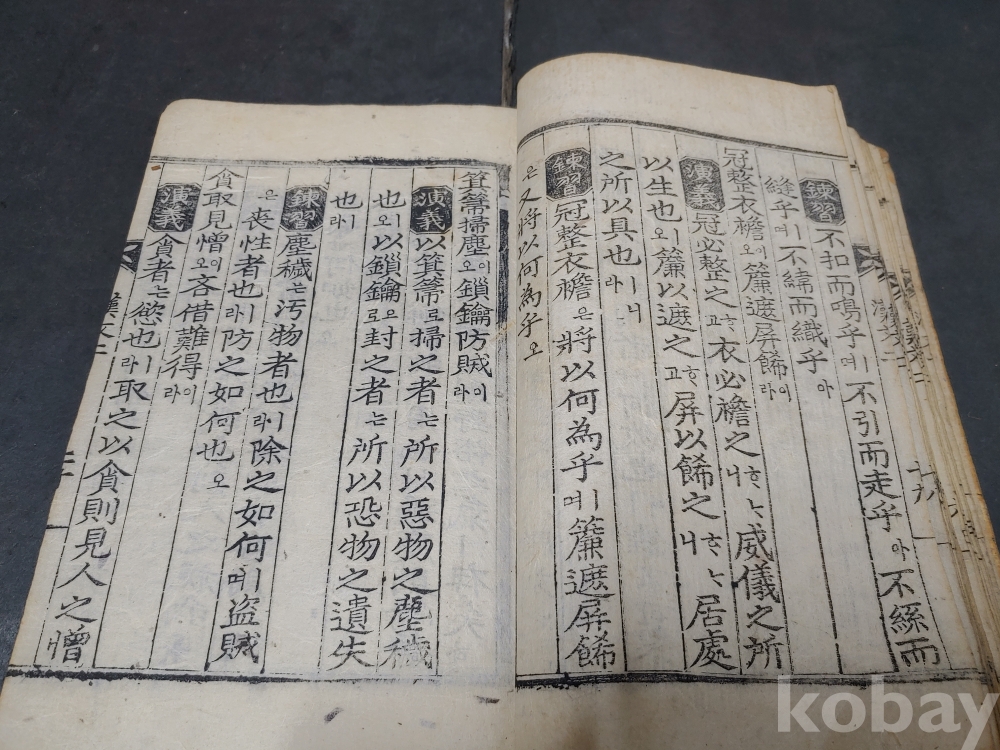 練習 不扣而鳴乎여 不引而走乎아 不絲而
縫乎여 不繡而織乎아
冠整衣襜이오 簾遮屛餙이라
演義 冠必整之고 衣必襜之니 威儀之所
以生也오 簾以遮之고 屛以餙之니 居處
之所以具也라
練習 冠整衣襜은 將以何為乎며 簾遮屏餙
은 又將以何為乎오
箕箒掃塵이오 鎖鑰防賊이라
演義 以箕箒로 掃之者는 所以惡物之塵穢
也오 以鎖鑰으로 封之者는 所以恐物之遺失
也라
練習 塵穢는 汚物者也라 除之如何며 盜賊
은 喪性者也라 防之如何也오
貪取見憎이오 吝借難得이라
演義 貪者는 慾也라 取之以貪則見人之憎
漢文二
kobay